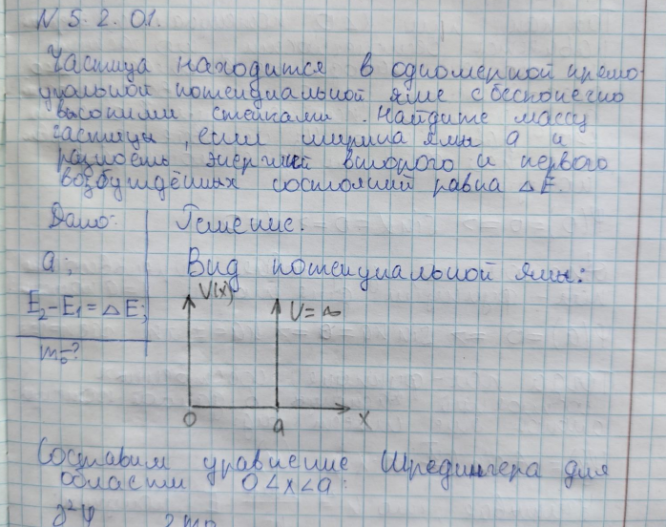 N 5.2.01.
Частица находится в одномерной прямо
угольной потенциальной яме с бесконечно
высокими стенками. Найдите массу
частицы, если ширина ямы a и
разность энергий второго и первого
возбуждённых состояний равна ΔE.
Дано: Решение.
a; Вид потенциальной ямы:
E₂-E₁=ΔE;
m₀-?
V(x)
V=∞
0 a x
Составим уравнение Шредингера для
области 0<x<a: